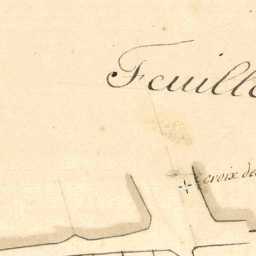 Feuille
croix de